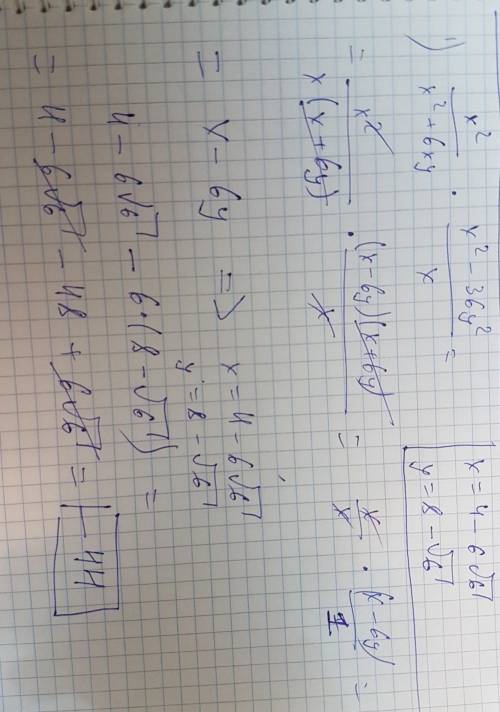 1) x²/(x² + 6xy) · (x² - 36y²)/x =
x = 4 - 6√6
y = 8 - √6
= x²/(x(x + 6y)) · (x - 6y)(x + 6y)/x = x/x · (x - 6y)/1 =
= x - 6y =>
x = 4 - 6√6
y = 8 - √6
4 - 6√6 - 6·(8 - √6) =
= 4 - 6√6 - 48 + 6√6 = -44